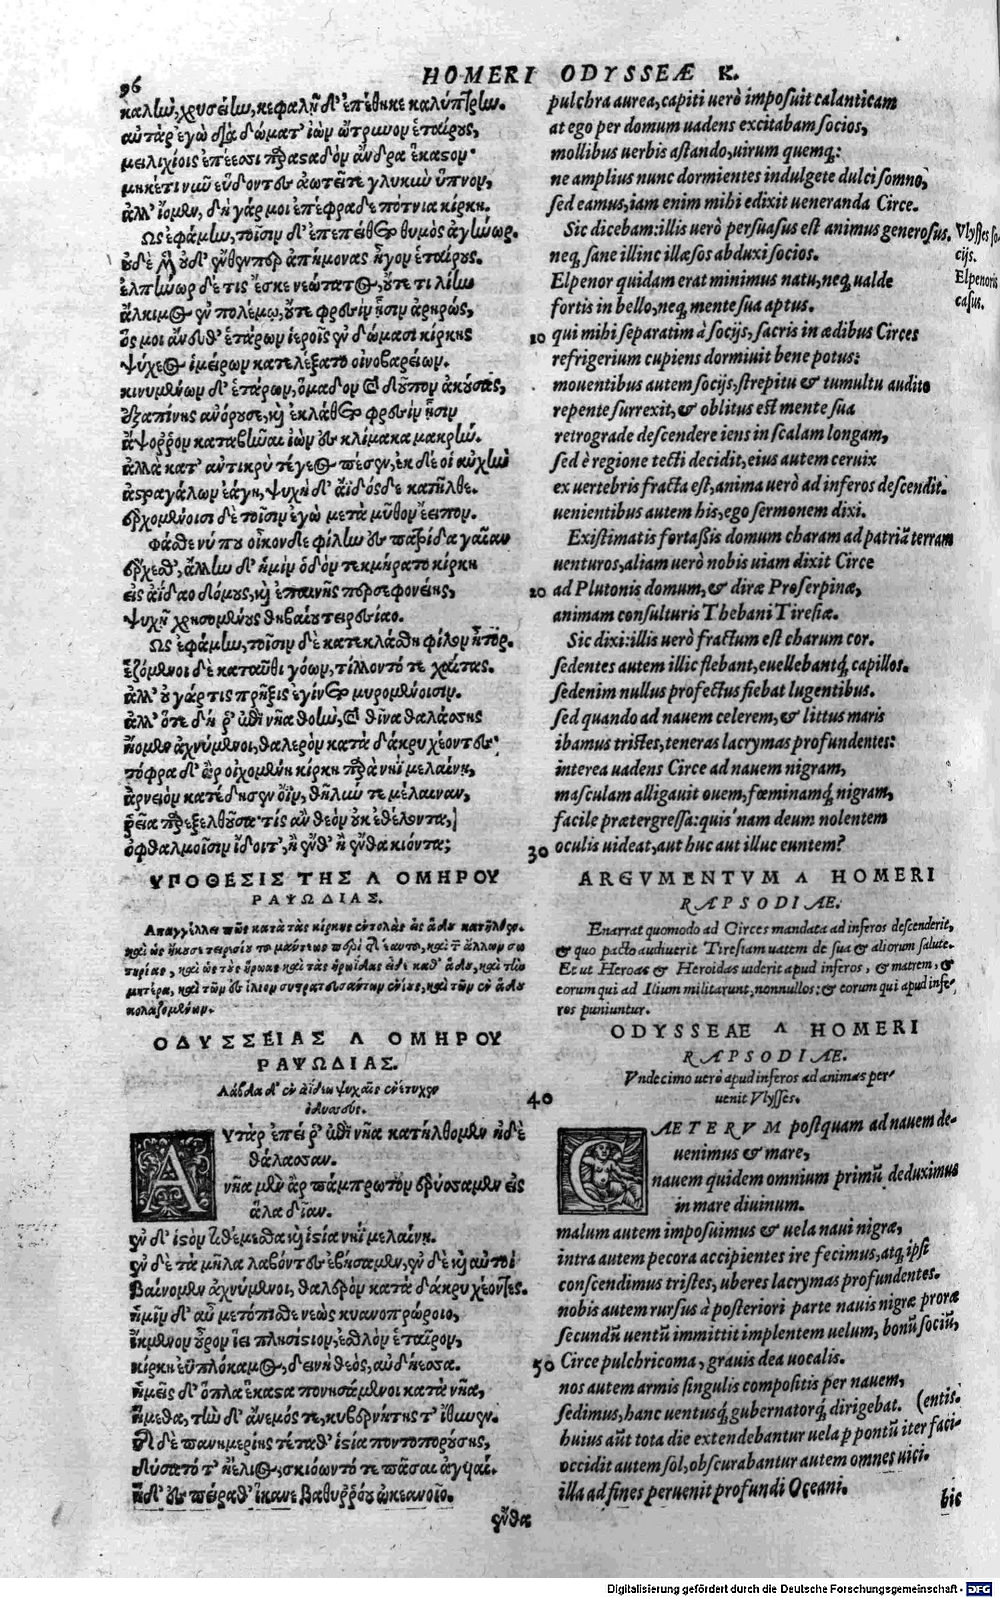 96
HOMERI ODYSSEÆ K.
καλὴν, χρυσείην, κεφαλῇ δ' ἐπέθηκε καλύπτρην.
αὐτὰρ ἐγὼ διὰ δώματ' ἰὼν ὤτρυνον ἑταίρους,
μειλιχίοις ἐπέεσσι παραστὰ δὸν ἄνδρα ἕκαστον·
μηκέτι νῦν εὕδοντες ἀωτεῖτε γλυκὺν ὕπνον,
ἀλλ' ἴομεν, δὴ γάρ μοι ἐπέφραδε πότνια κίρκη.
Ως ἐφάμην, τοῖσιν δ' ἐπεπείθετο θυμὸς ἀγήνωρ.
οὐδὲ μὲν οὐδ' ἔνθεν περ ἀπήμονας ἦγον ἑταίρους.
ἐλπήνωρ δέ τις ἔσκε νεώτατος, οὔτε τι λίην
ἄλκιμος ἐν πολέμῳ, οὔτε φρεσὶν ᾗσιν ἀρηρώς,
ὅς μοι ἄνευθ' ἑτάρων ἱεροῖς ἐν δώμασι κίρκης
ψύχεος ἱμείρων κατελέξατο οἰνοβαρείων.
κινυμένων δ' ἑτάρων, ὅμαδον καὶ δοῦπον ἀκούσας,
ἐξαπίνης ἀνόρουσε, καὶ ἐκλάθετο φρεσὶν ᾗσιν
ἄψορρον καταβῆναι ἰὼν ἐς κλίμακα μακρήν.
ἀλλὰ κατ' ἀντικρὺ τέγεος πέσεν, ἐκ δέ οἱ αὐχὴν
ἀστραγάλων ἐάγη, ψυχὴ δ' ἄϊδόσδε κατῆλθε.
ἐρχομένοισι δὲ τοῖσιν ἐγὼ μετὰ μῦθον ἔειπον.
Φάσθε νύ που οἶκον δὲ φίλην ἐς πατρίδα γαῖαν
ἔρχεσθ', ἄλλην δ' ἡμῖν ὁδὸν τεκμήρατο κίρκη
εἰς ἀΐδαο δόμους, καὶ ἐπαινῆς περσεφονείης,
ψυχῇ χρησομένους θηβαίου τειρεσίαο.
Ως ἐφάμην, τοῖσιν δὲ κατεκλάσθη φίλον ἦτορ.
ἑζόμενοι δὲ καταῦθι γόων, τίλλοντό τε χαίτας.
ἀλλ' οὐ γάρ τις πρῆξις ἐγίνετο μυρομένοισιν.
ἀλλ' ὅτε δή ῥ' ἐπὶ νῆα θοὴν, καὶ θῖνα θαλάσσης
ᾔομεν ἀχνύμενοι, θαλερὸν κατὰ δάκρυ χέοντες·
τόφρα δ' ἄρ οἰχομένη κίρκη παρὰ νηῒ μελαίνῃ,
ἀρνειὸν κατέδησεν ὄϊν, θῆλυν τε μέλαιναν,
ῥεῖα παρεξελθοῦσα· τίς ἂν θεὸν οὐκ ἐθέλοντα,
ὀφθαλμοῖσιν ἴδοιτ', ἢ ἔνθ' ἢ ἔνθα κιόντα;
ΥΠΟΘΕΣΙΣ ΤΗΣ Λ ΟΜΗΡΟΥ
ΡΑΨΩΔΙΑΣ.
Απαγγέλλει πῶς κατὰ τὰς κίρκης ἐντολὰς εἰς ᾅδου κατῆλθε.
καὶ ὡς ἤκουσε τειρεσίου τοῦ μάντεως περὶ τῆς ἑαυτοῦ, καὶ τῶν ἄλλων σω
τηρίας, καὶ ὡς τοὺς ἥρωας καὶ τὰς ἡρωΐδας εἶδε καθ' ᾅδου, καὶ τὴν
μητέρα, καὶ τῶν ἐς ἴλιον συστρατευσάντων ἐνίους, καὶ τῶν ἐν ᾅδου
κολαζομένων.
ΟΔΥΣΣΕΙΑΣ Λ ΟΜΗΡΟΥ
ΡΑΨΩΔΙΑΣ.
Λάβδα δ' ἐν ἀΐδεω ψυχαῖς ἐνέτυχεν
ὀδυσσεύς.
ΑΥΤΑΡ ἐπεί ῥ' ἐπὶ νῆα κατήλθομεν ἠδὲ
θάλασσαν.
νῆα μὲν ἂρ πάμπρωτον ἐρύσσαμεν εἰς
ἅλα δῖαν.
ἐν δ' ἱστὸν τιθέμεσθα καὶ ἱστία νηῒ μελαίνῃ.
ἐν δὲ τὰ μῆλα λαβόντες ἐβήσαμεν, ἐν δὲ καὶ αὐτοὶ
Βαίνομεν ἀχνύμενοι, θαλερὸν κατὰ δάκρυ χέοντες.
ἡμῖν δ' αὖ μετόπισθε νεὼς κυανοπρώροιο,
ἴκμενον οὖρον ἵει πλησίστιον, ἐσθλὸν ἑταῖρον,
κίρκη ἐϋπλόκαμος, δεινὴ θεὸς, αὐδήεσσα.
ἡμεῖς δ' ὅπλα ἕκαστα πονησάμενοι κατὰ νῆα,
ἥμεθα, τὴν δ' ἄνεμός τε, κυβερνήτης τ' ἴθυνεν.
τῆς δὲ πανημερίης τέταθ' ἱστία ποντοπορούσης,
δύσατό τ' ἠέλιος, σκιόωντό τε πᾶσαι ἀγυιαί.
ἡ δ' ἐς πείραθ' ἵκανε Βαθυρρόου ὠκεανοῖο.
ἔνθα
pulchra aurea, capiti uerò imposuit calanticam
at ego per domum uadens excitabam socios,
mollibus uerbis astando, uirum quemq;:
ne amplius nunc dormientes indulgete dulci somno,
sed eamus, iam enim mihi edixit ueneranda Circe.
Sic dicebam: illis uerò persuasus est animus generosus.
neq, sane illinc illæsos abduxi socios.
Elpenor quidam erat minimus natu, neq, ualde
fortis in bello, neq, mente sua aptus.
10 qui mihi separatim à socijs, sacris in ædibus Circes
refrigerium cupiens dormiuit bene potus:
mouentibus autem socijs, strepitu & tumultu audito
repente surrexit, & oblitus est mente sua
retrograde descendere iens in scalam longam,
sed è regione tecti decidit, eius autem ceruix
ex uertebris fracta est, anima uerò ad inferos descendit.
uenientibus autem his, ego sermonem dixi.
Existimatis fortassis domum charam ad patriã terram
uenturos, aliam uerò nobis uiam dixit Circe
20 ad Plutonis domum, & diræ Proserpinæ,
animam consulturis Thebani Tiresiæ.
Sic dixi: illis uerò fractum est charum cor.
sedentes autem illic flebant, euellebantq́; capillos.
sedenim nullus profectus fiebat lugentibus.
sed quando ad nauem celerem, & littus maris
ibamus tristes, teneras lacrymas profundentes:
interea uadens Circe ad nauem nigram,
masculam alligauit ouem, fœminamq́; nigram,
facile prætergressa: quis'nam deum nolentem
30 oculis uideat, aut huc aut illuc euntem?
ARGVMENTVM Λ HOMERI
RAPSODIÆ.
Enarrat quomodo ad Circes mandata ad inferos descenderit,
& quo pacto audiuerit Tiresiam uatem de sua & aliorum salute.
Et ut Heroas & Heroidas uiderit apud inferos, & matrem, &
eorum qui ad Ilium militarunt, nonnullos: & eorum qui apud infe,
ros puniuntur.
ODYSSEAE Λ HOMERI
RAPSODIÆ.
Vndecimo uerò apud inferos ad animas per-
40 uenit Vlysses.
CÆTERVM postquam ad nauem de-
uenimus & mare,
nauem quidem omnium primũ deduximus
in mare diuinum.
malum autem imposuimus & uela naui nigræ,
intra autem pecora accipientes ire fecimus, atq, ipsi
conscendimus tristes, uberes lacrymas profundentes.
nobis autem rursus à posteriori parte nauis nigræ proræ
secundũ uentũ immittit implentem uelum, bonũ sociũ,
50 Circe pulchricoma, grauis dea uocalis.
nos autem armis singulis compositis per nauem,
sedimus, hanc uentusq́; gubernatorq́; dirigebat. (entis.
huius aũt tota die extendebantur uela p pontũ iter faci-
occidit autem sol, obscurabantur autem omnes uici.
illa ad fines peruenit profundi Oçeani.
hic
Vlysses so
cijs.
Elpenoris
casus.
Digitalisierung gefördert durch die Deutsche Forschungsgemeinschaft - DFG